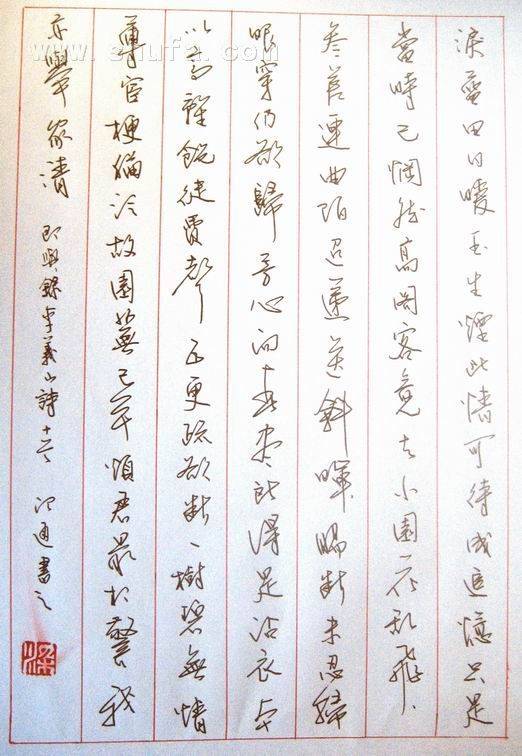 淚藍田日暖玉生煙此情可待成追憶只是
當時已惘然高閣客竟去小園花亂飛
參差連曲陌迢遞送斜暉腸斷未忍
眼穿仍欲歸芳心向春盡所得是沾衣本
以高難飽徒費聲五更疏欲斷一樹碧無情
薄宦梗猶泛故園蕪已平煩君最相警我
亦舉家清 即興錄李義山詩 通書之
www.shufa.com